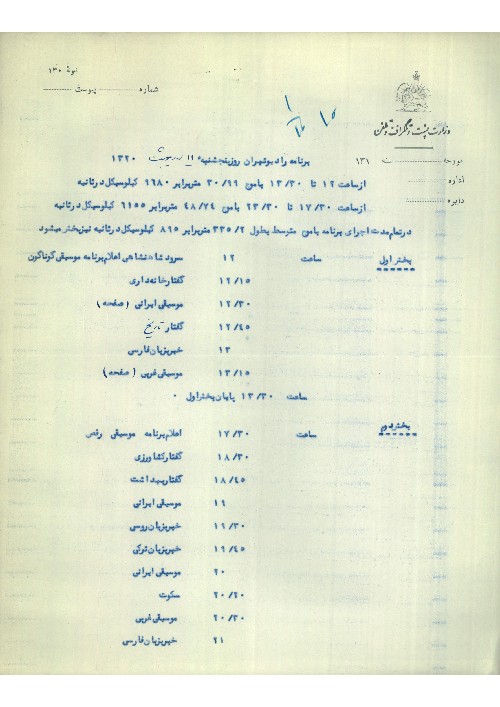 نمونهٔ ۱۳۰
شماره پیوست
وزارت پست و تلگراف و تلفن
مورخه ۱۳۱
اداره
دایره
برنامه رادیو تهران روز پنجشنبه ۱۱ اردیبهشت ۱۳۲۰
از ساعت ۱۲ تا ۱۳/۳۰ با موج ۳۰/۹۹ متر برابر ۹۶۸۰ کیلوسیکل در ثانیه
از ساعت ۱۷/۳۰ تا ۲۳/۳۰ با موج ۴۸/۷۴ متر برابر ۶۱۵۵ کیلوسیکل در ثانیه
در تمام مدت اجرای برنامه با موج متوسط بطول ۳۳۵/۲ متر برابر ۸۹۵ کیلوسیکل در ثانیه نیز پخش میشود
پخش اول ساعت ۱۲ سرود شاهنشاهی اعلام برنامه موسیقی گوناگون
۱۲/۱۵ گفتار خانه داری
۱۲/۳۰ موسیقی ایرانی (صفحه)
۱۲/۴۵ گفتار تاریخ
۱۳ خبر بزبان فارسی
۱۳/۱۵ موسیقی غربی (صفحه)
ساعت ۱۳/۳۰ پایان پخش اول .
پخش دوم ساعت ۱۷/۳۰ اعلام برنامه موسیقی رقص
۱۸/۳۰ گفتار کشاورزی
۱۸/۴۵ گفتار بهداشت
۱۹ موسیقی ایرانی
۱۹/۳۰ خبر بزبان روسی
۱۹/۴۵ خبر بزبان ترکی
۲۰ موسیقی ایرانی
۲۰/۲۰ سکوت
۲۰/۳۰ موسیقی غربی
۲۱ خبر بزبان فارسی